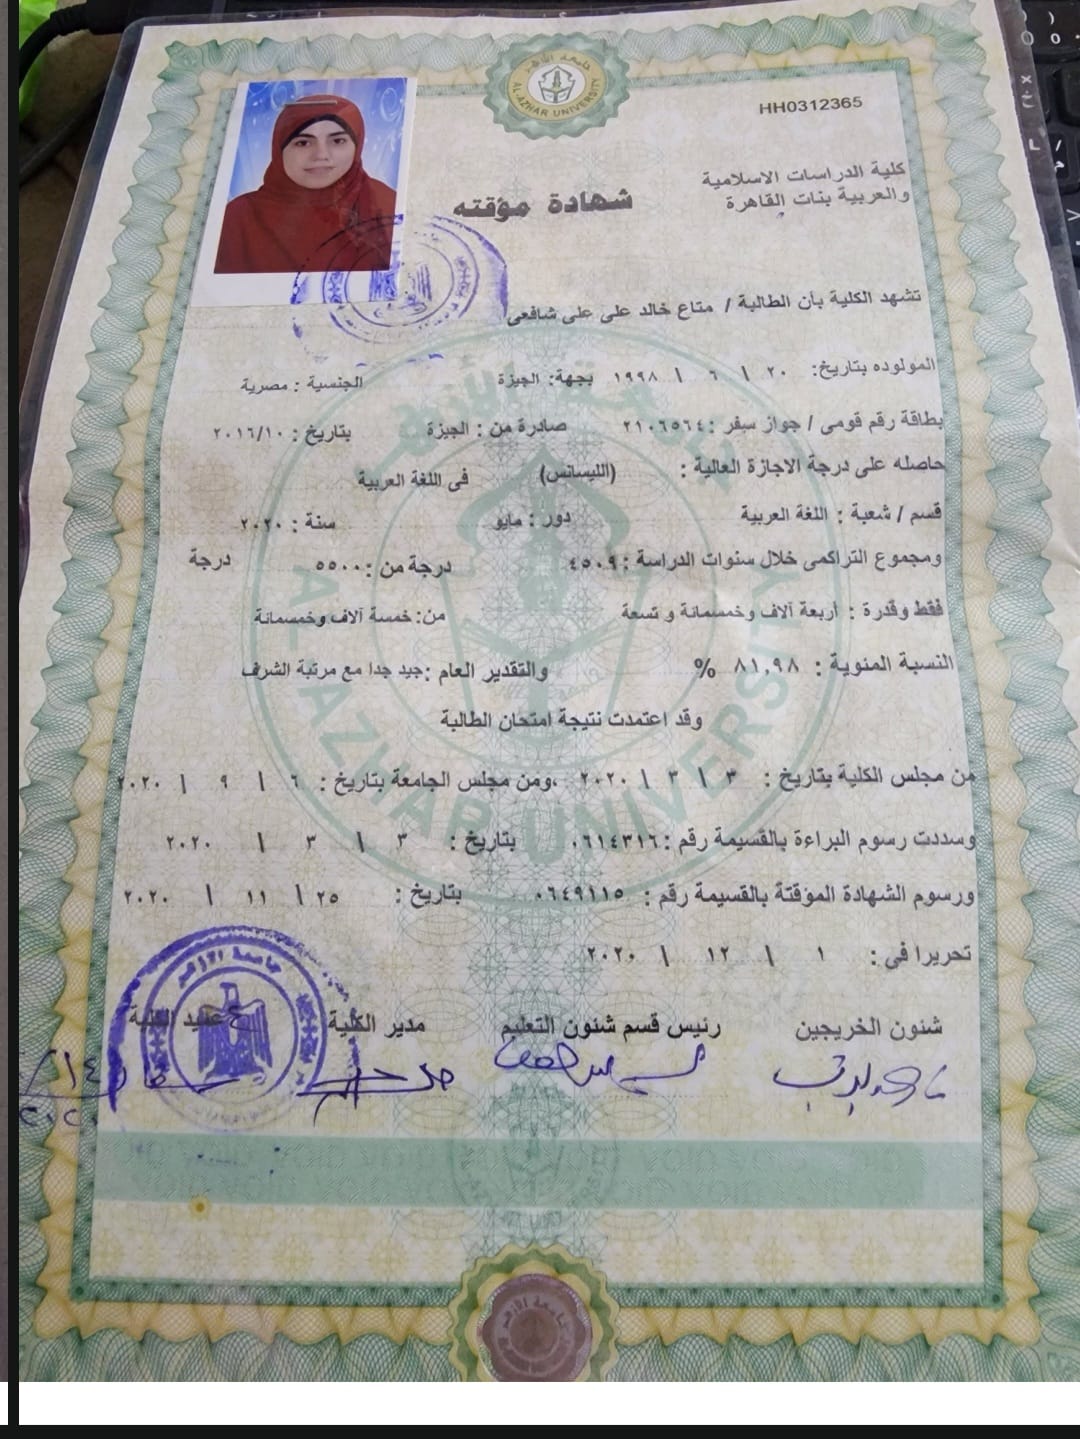 جامعة الأزهر
AL-AZHAR UNIVERSITY
HH0312365
كلية الدراسات الاسلامية
والعربية بنات القاهرة
شهادة مؤقته
تشهد الكلية بأن الطالبة / متاع خالد على على شافعى
المولوده بتاريخ: ٢٠ / ٦ / ١٩٩٨ بجهة: الجيزة الجنسية : مصرية
بطاقة رقم قومى / جواز سفر : ٢١٠٦٥٦٤ صادرة من : الجيزة بتاريخ : ٢٠١٦/١٠
حاصله على درجة الاجازة العالية : (الليسانس) فى اللغة العربية
قسم / شعبة : اللغة العربية دور : مايو سنة : ٢٠٢٠
ومجموع التراكمى خلال سنوات الدراسة : ٤٥٠٩ درجة من : ٥٥٠٠ درجة
فقط وقدرة : أربعة آلاف وخمسمائة و تسعة من: خمسة آلاف وخمسمائة
النسبة المئوية : ٨١,٩٨ % والتقدير العام : جيد جدا مع مرتبة الشرف
وقد اعتمدت نتيجة امتحان الطالبة
من مجلس الكلية بتاريخ : ٣ / ٣ / ٢٠٢٠ ،ومن مجلس الجامعة بتاريخ : ٦ / ٩ / ٢٠٢٠
وسددت رسوم البراءة بالقسيمة رقم : ٠٦١٤٣١٦ بتاريخ : ٣ / ٣ / ٢٠٢٠
ورسوم الشهادة المؤقتة بالقسيمة رقم : ٠٦٤٩١١٥ بتاريخ : ٢٥ / ١١ / ٢٠٢٠
تحريرا فى : ١ / ١٢ / ٢٠٢٠
شئون الخريجين رئيس قسم شئون التعليم مدير الكلية عميد الكلية
جامعة الأزهر
AL AZHAR UNIVERSITY
جامعة الأزهر
جامعة الأزهر